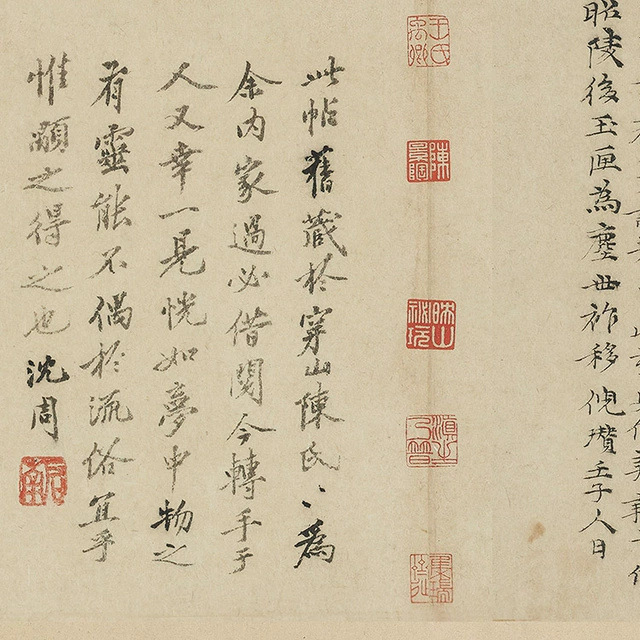 昭陵後玉匣為塵世祚移倪瓚壬子人日
此帖舊藏於穿山陳氏〻為
余內家過必借閱今轉手于
人又幸一見恍如夢中物之
有靈能不偶於流俗宜乎
惟顒之得之也沈周
啟南